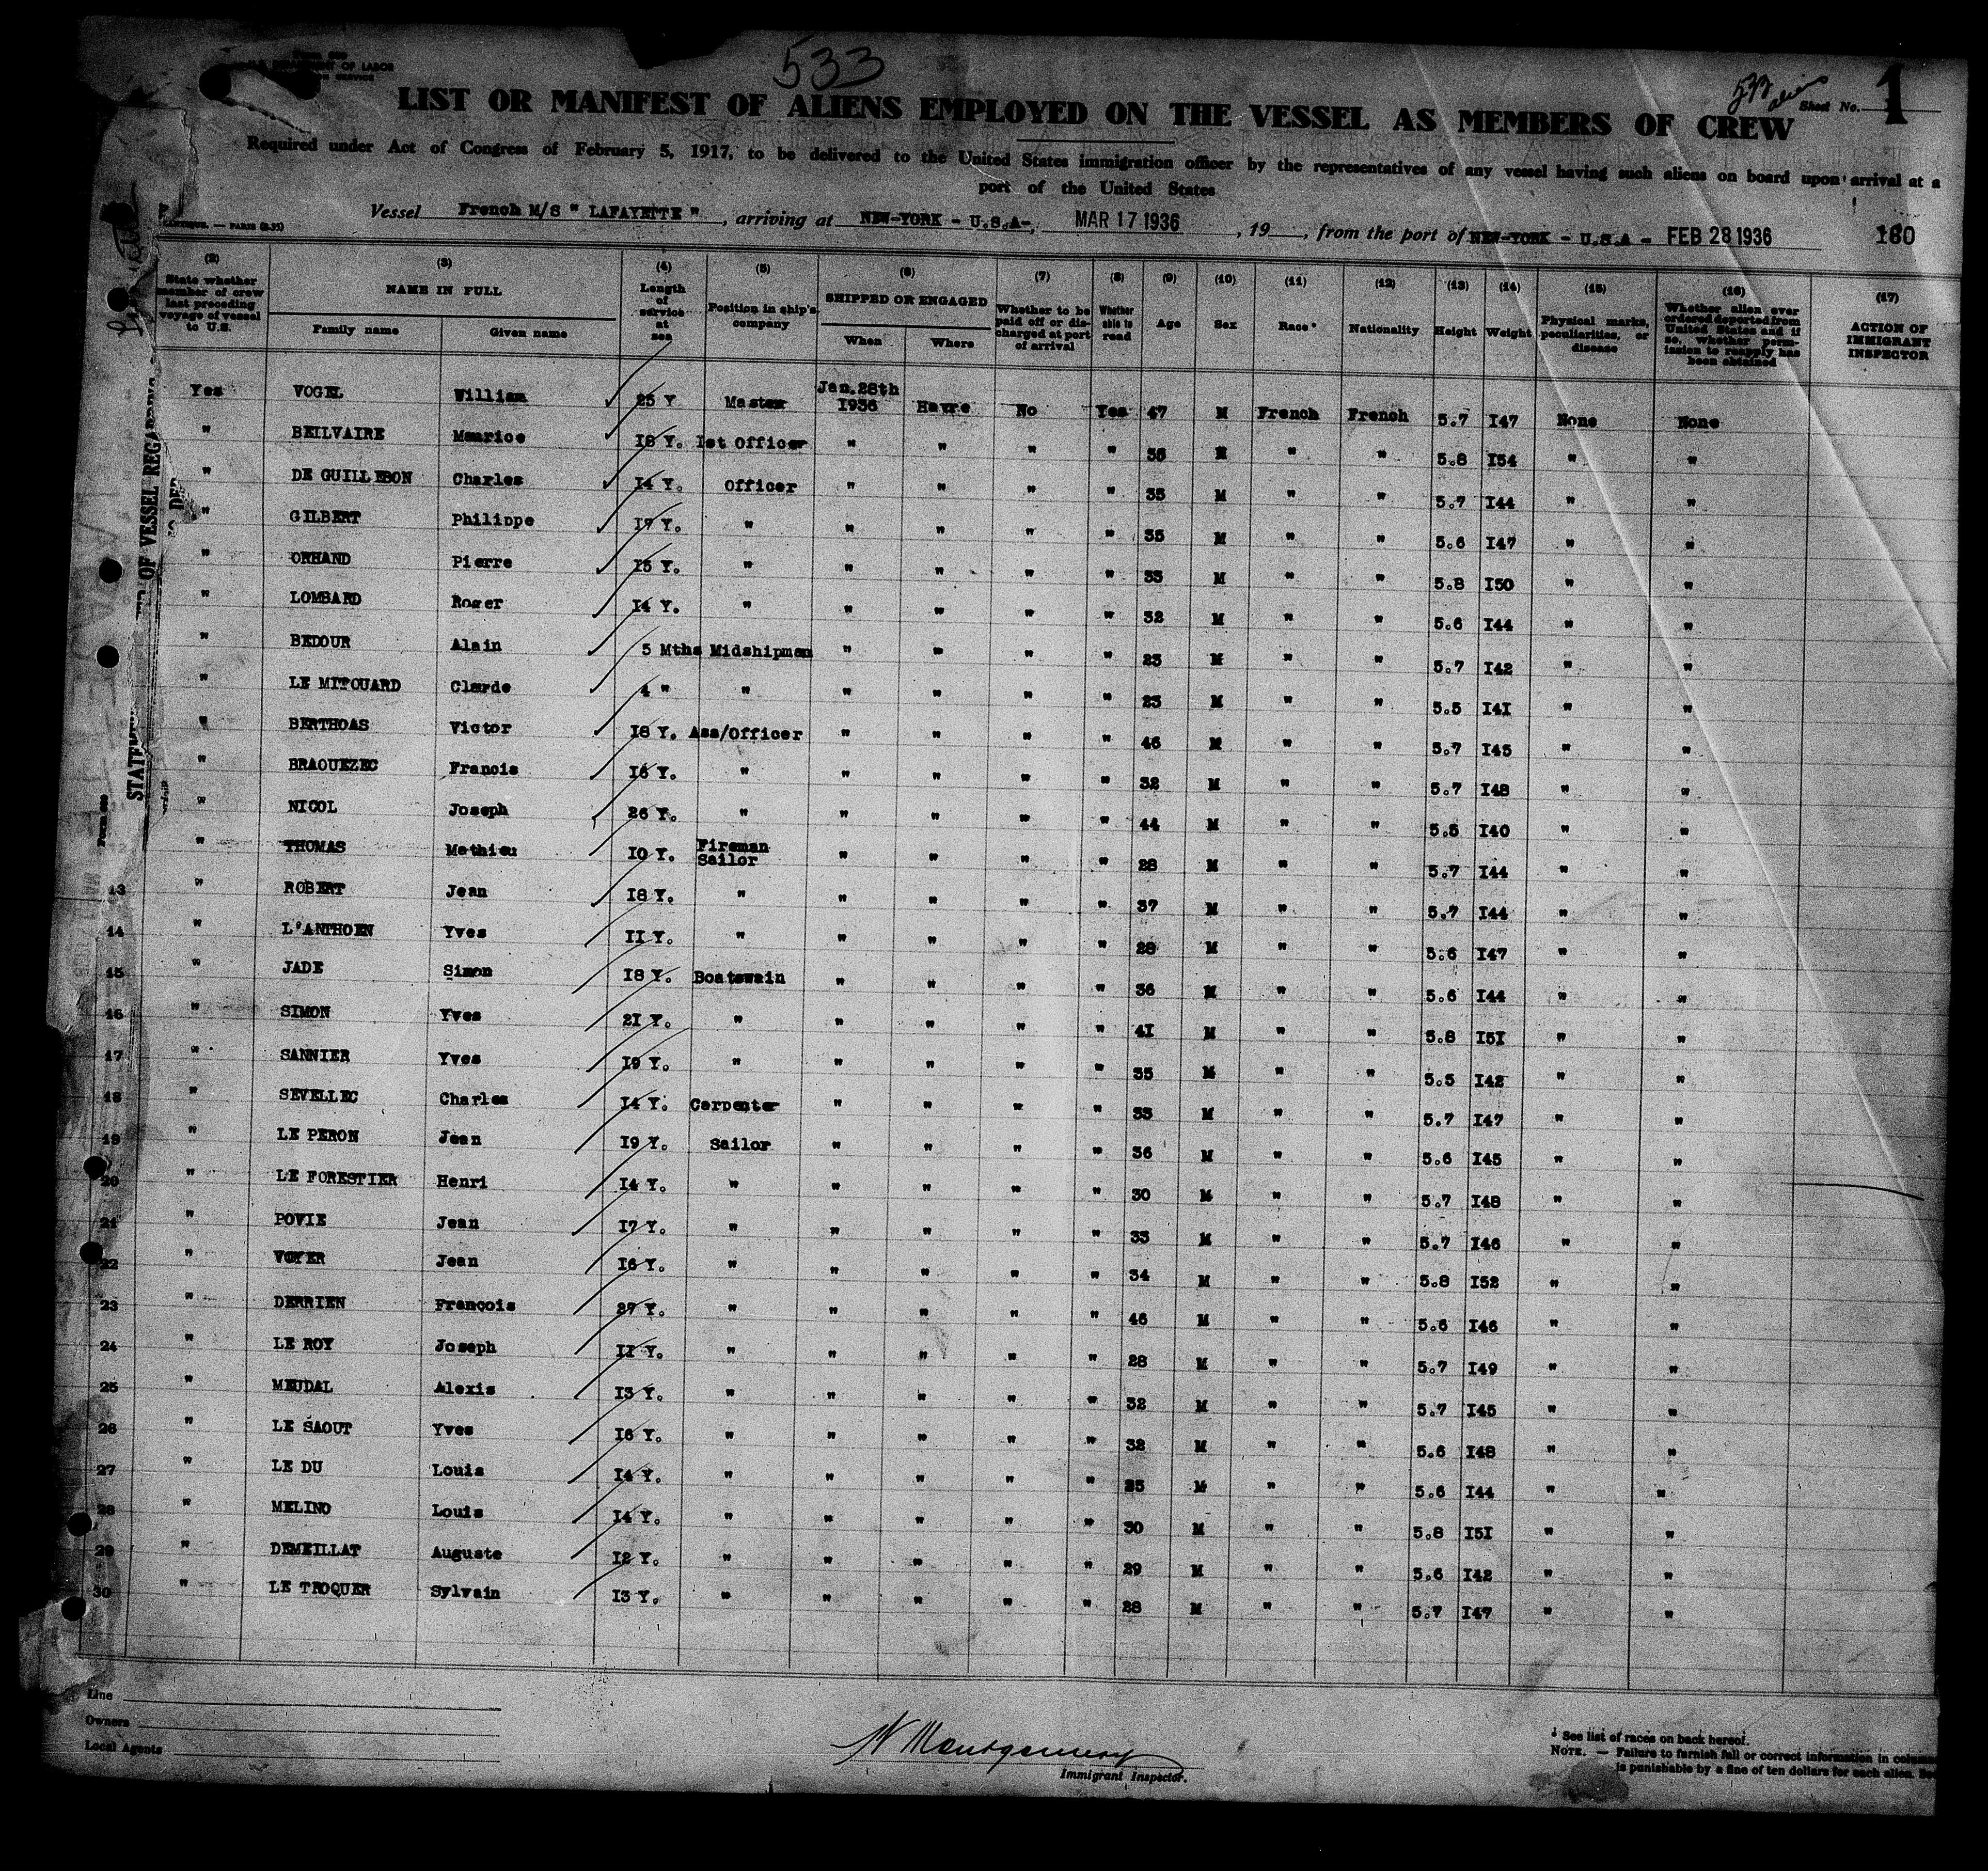 533
DEPARTMENT OF LABOR
533 aliens
Sheet No. 1
LIST OR MANIFEST OF ALIENS EMPLOYED ON THE VESSEL AS MEMBERS OF CREW
Required under Act of Congress of February 5, 1917, to be delivered to the United States immigration officer by the representatives of any vessel having such aliens on board upon arrival at a
port of the United States
Vessel French M/S " LAFAYETTE ", arriving at NEW-YORK - U.S.A-, MAR 17 1936, 19, from the port of NEW-YORK - U.S.A - FEB 28 1936 160
(2) (3) (4) (5) (6) (7) (8) (9) (10) (11) (12) (13) (14) (15) (16) (17)
State whether member of crew last preceding voyage of vessel to U.S. NAME IN FULL Family name Given name Length of service at sea Position in ship's company SHIPPED OR ENGAGED When Where Whether to be paid off or discharged at port of arrival Whether able to read Age Sex Race* Nationality Height Weight Physical marks, peculiarities, or disease Whether alien ever ordered deported from United States and if so, whether permission to reapply has been obtained ACTION OF IMMIGRANT INSPECTOR
Yes VOGEL William 25 Y Master Jan.28th I936 Havre No Yes 47 M French French 5.7 I47 None None
" BEILVAIRE Maurice I8 Y. Ist Officer " " " " 36 M " " 5.8 I54 " "
" DE GUILLEBON Charles I4 Y. Officer " " " " 35 M " " 5.7 I44 " "
" GILBERT Philippe I7 Y. " " " " " 35 M " " 5.6 I47 " "
" ORHAND Pierre I5 Y. " " " " " 33 M " " 5.8 I50 " "
" LOMBARD Roger I4 Y. " " " " " 32 M " " 5.6 I44 " "
" BEDOUR Alain 5 Mths Midshipman " " " " 23 M " " 5.7 I42 " "
" LE MITOUARD Claude 4 " " " " " " 23 M " " 5.5 I4I " "
" BERTHOAS Victor I8 Y. Ass/Officer " " " " 46 M " " 5.7 I45 " "
" BRAOUEZEC Francis I6 Y. " " " " " 32 M " " 5.7 I48 " "
" NICOL Joseph 26 Y. " " " " " 44 M " " 5.5 I40 " "
" THOMAS Mathieu IO Y. Fireman Sailor " " " " 28 M " " 5.7 I44 " "
13 " ROBERT Jean I8 Y. " " " " " 37 M " " 5.7 I44 " "
14 " L'ANTHOEN Yves II Y. " " " " " 28 M " " 5.6 I47 " "
15 " JADE Simon I8 Y. Boatswain " " " " 36 M " " 5.6 I44 " "
16 " SIMON Yves 2I Y. " " " " " 4I M " " 5.8 I5I " "
17 " SANNIER Yves I9 Y. " " " " " 35 M " " 5.5 I42 " "
18 " SEVELLEC Charles I4 Y. Carpenter " " " " 33 M " " 5.7 I47 " "
19 " LE PERON Jean I9 Y. Sailor " " " " 36 M " " 5.6 I45 " "
20 " LE FORESTIER Henri I4 Y. " " " " " 30 M " " 5.7 I48 " "
21 " POVIE Jean I7 Y. " " " " " 33 M " " 5.7 I46 " "
22 " VOYER Jean I6 Y. " " " " " 34 M " " 5.8 I52 " "
23 " DERRIEN François 27 Y. " " " " " 46 M " " 5.6 I46 " "
24 " LE ROY Joseph II Y. " " " " " 28 M " " 5.7 I49 " "
25 " MEUDAL Alexis I3 Y. " " " " " 32 M " " 5.7 I45 " "
26 " LE SAOUT Yves I6 Y. " " " " " 32 M " " 5.6 I48 " "
27 " LE DU Louis I4 Y. " " " " " 35 M " " 5.6 I44 " "
28 " MELINO Louis I4 Y. " " " " " 30 M " " 5.8 I5I " "
29 " DEMEILLAT Auguste I2 Y. " " " " " 29 M " " 5.6 I42 " "
30 " LE TROQUER Sylvain I3 Y. " " " " " 28 M " " 5.7 I47 " "
Line
Owners
Local Agents
W Montgomery
Immigrant Inspector.
* See list of races on back hereof.
NOTE. — Failure to furnish full or correct information in
is punishable by a fine of ten dollars for each alien.